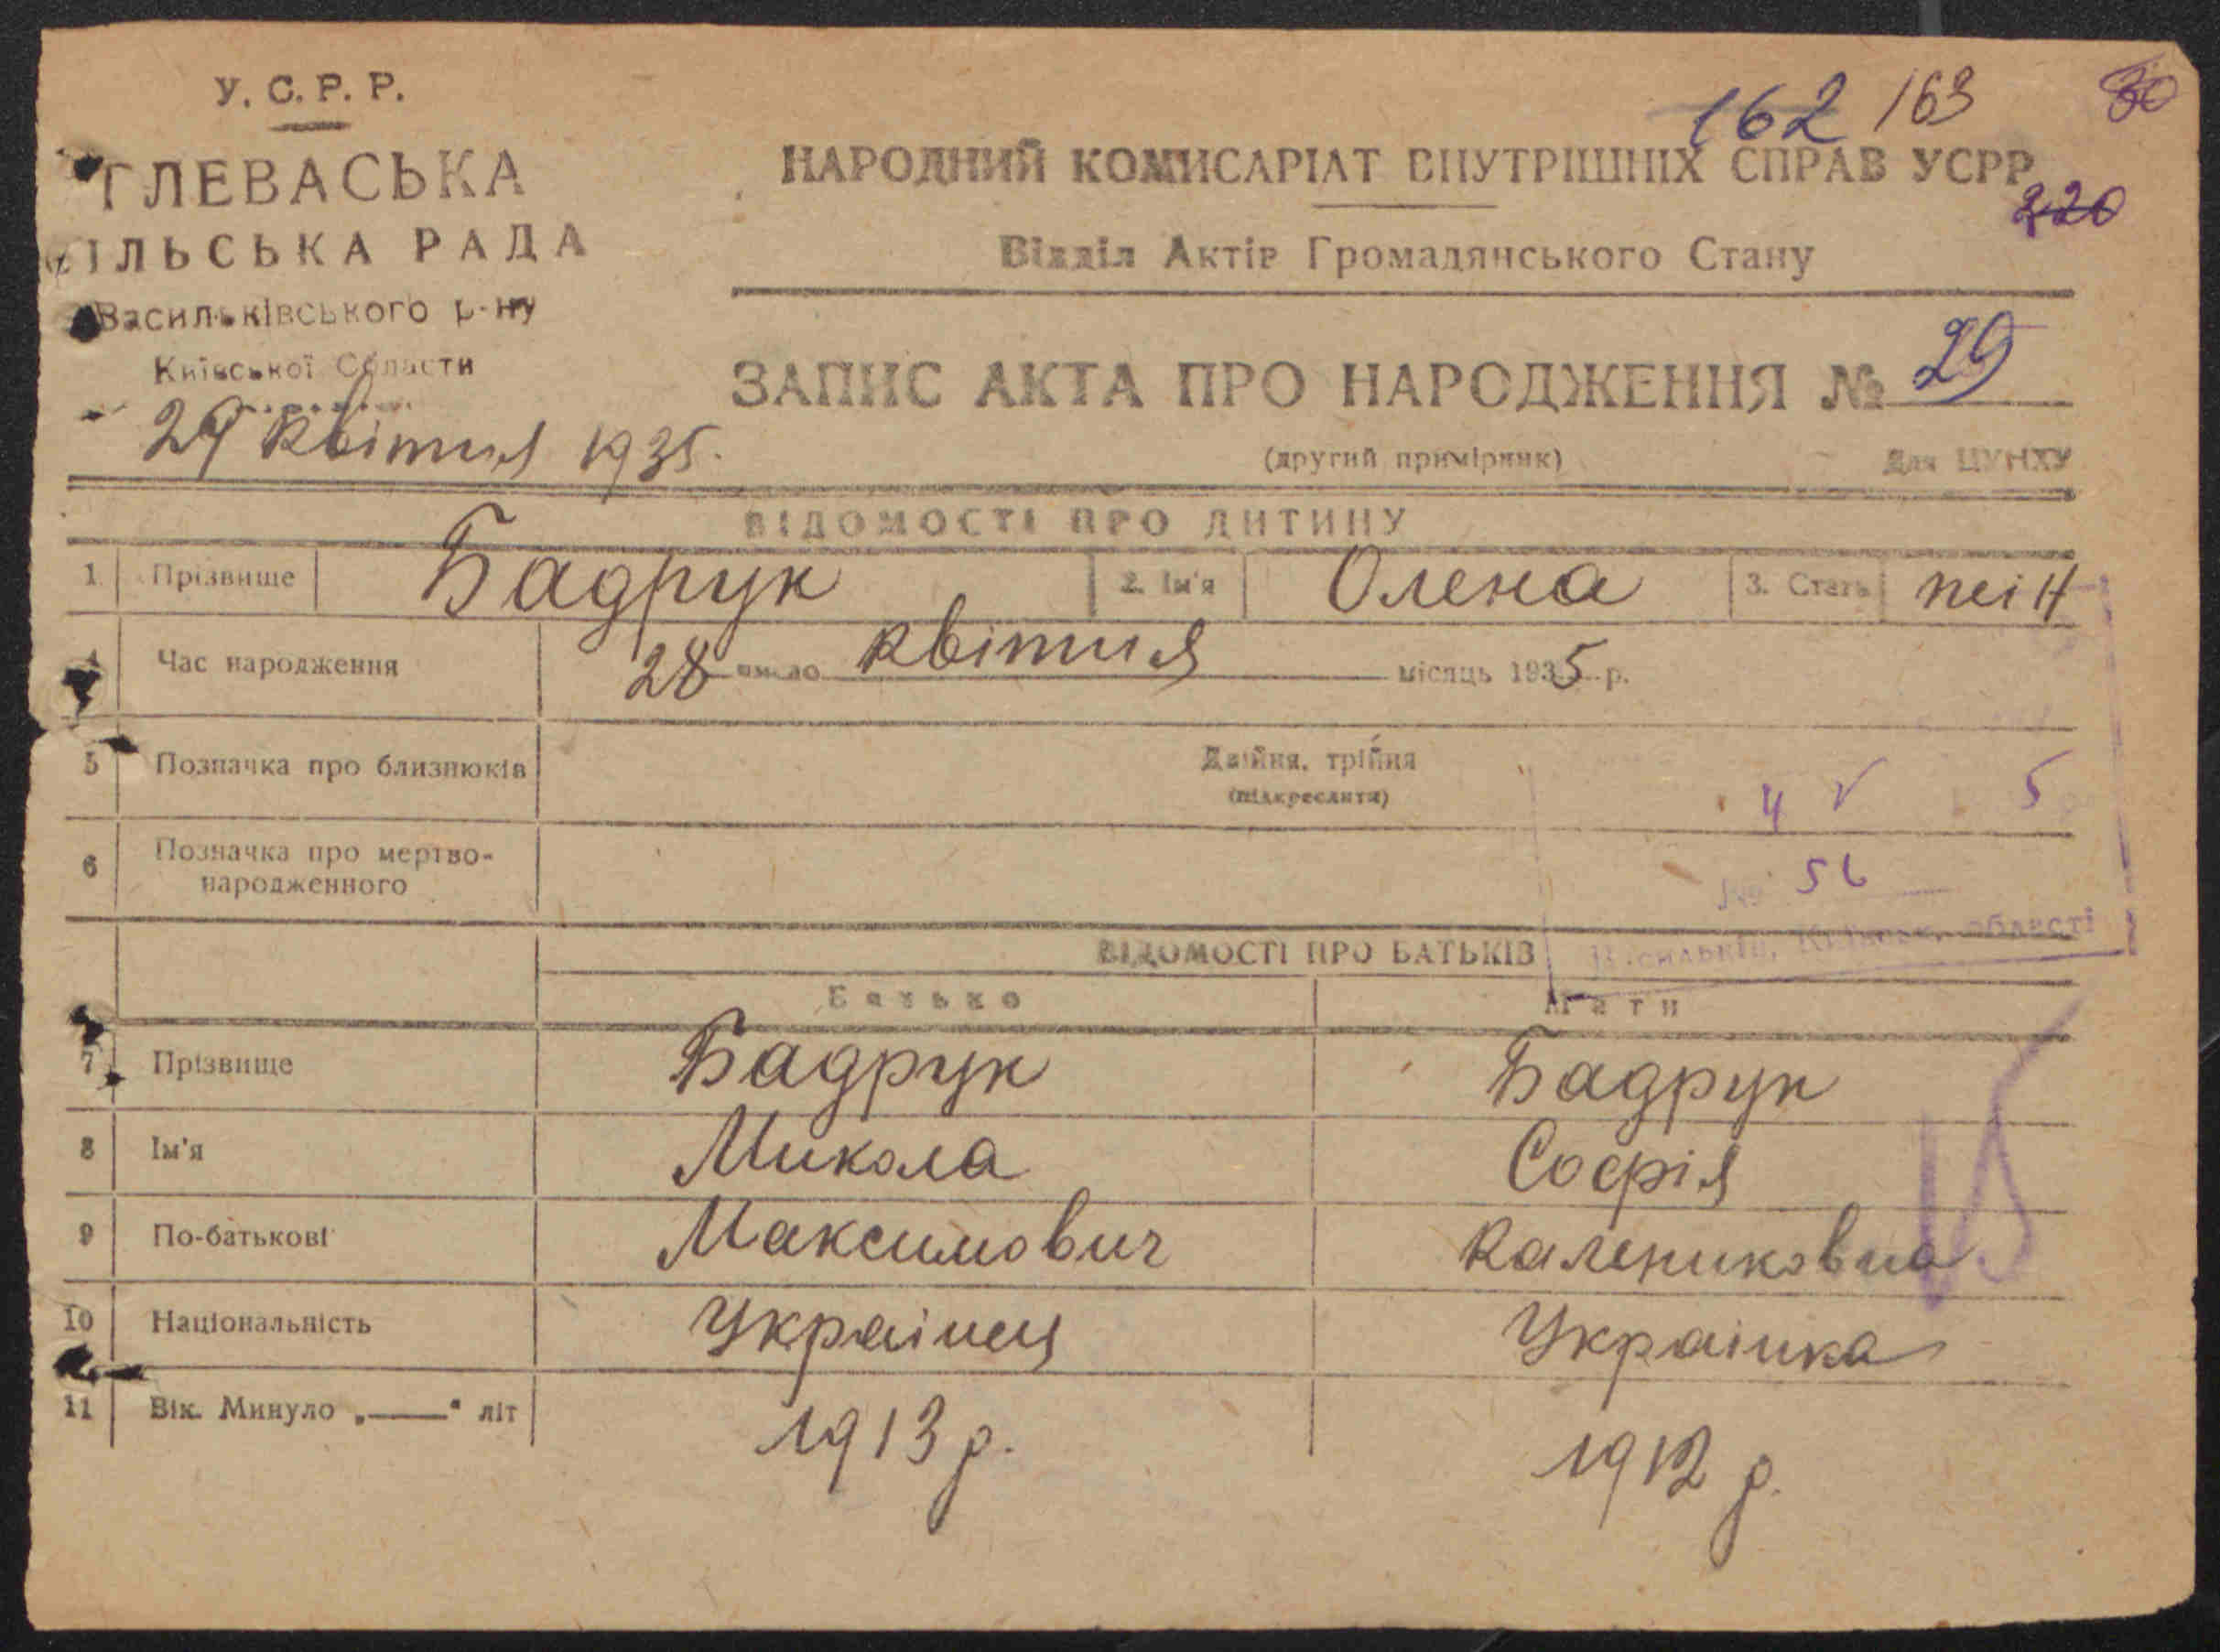 У. С. Р. Р.
ГЛЕВАСЬКА
СІЛЬСЬКА РАДА
Васильківського р-ну
Київської Области
29 квітня 1935.
162 163 80
НАРОДНИЙ КОМИСАРІАТ ВНУТРІШНІХ СПРАВ УСРР
220
Відділ Актів Громадянського Стану
ЗАПИС АКТА ПРО НАРОДЖЕННЯ № 29
(другий примірник) Для ЦУНХУ
ВІДОМОСТІ ПРО ДИТИНУ
1 Прізвище Бадрук 2. Ім'я Олена 3. Стать
4 Час народження 28 число квітня місяць 1935 р.
5 Позначка про близнюків Двійня, трійня
(підкреслити)
4 V 5
6 Позначка про мертво-
народженного
№ 56
Васильків, Київськ. області
ВІДОМОСТІ ПРО БАТЬКІВ
Батько Мати
7 Прізвище Бадрук Бадрук
8 Ім'я Микола Софія
9 По-батькові Максимович Калениковна
10 Національність Украінец Украінка
11 Вік. Минуло „——“ літ 1913 р. 1912 р.